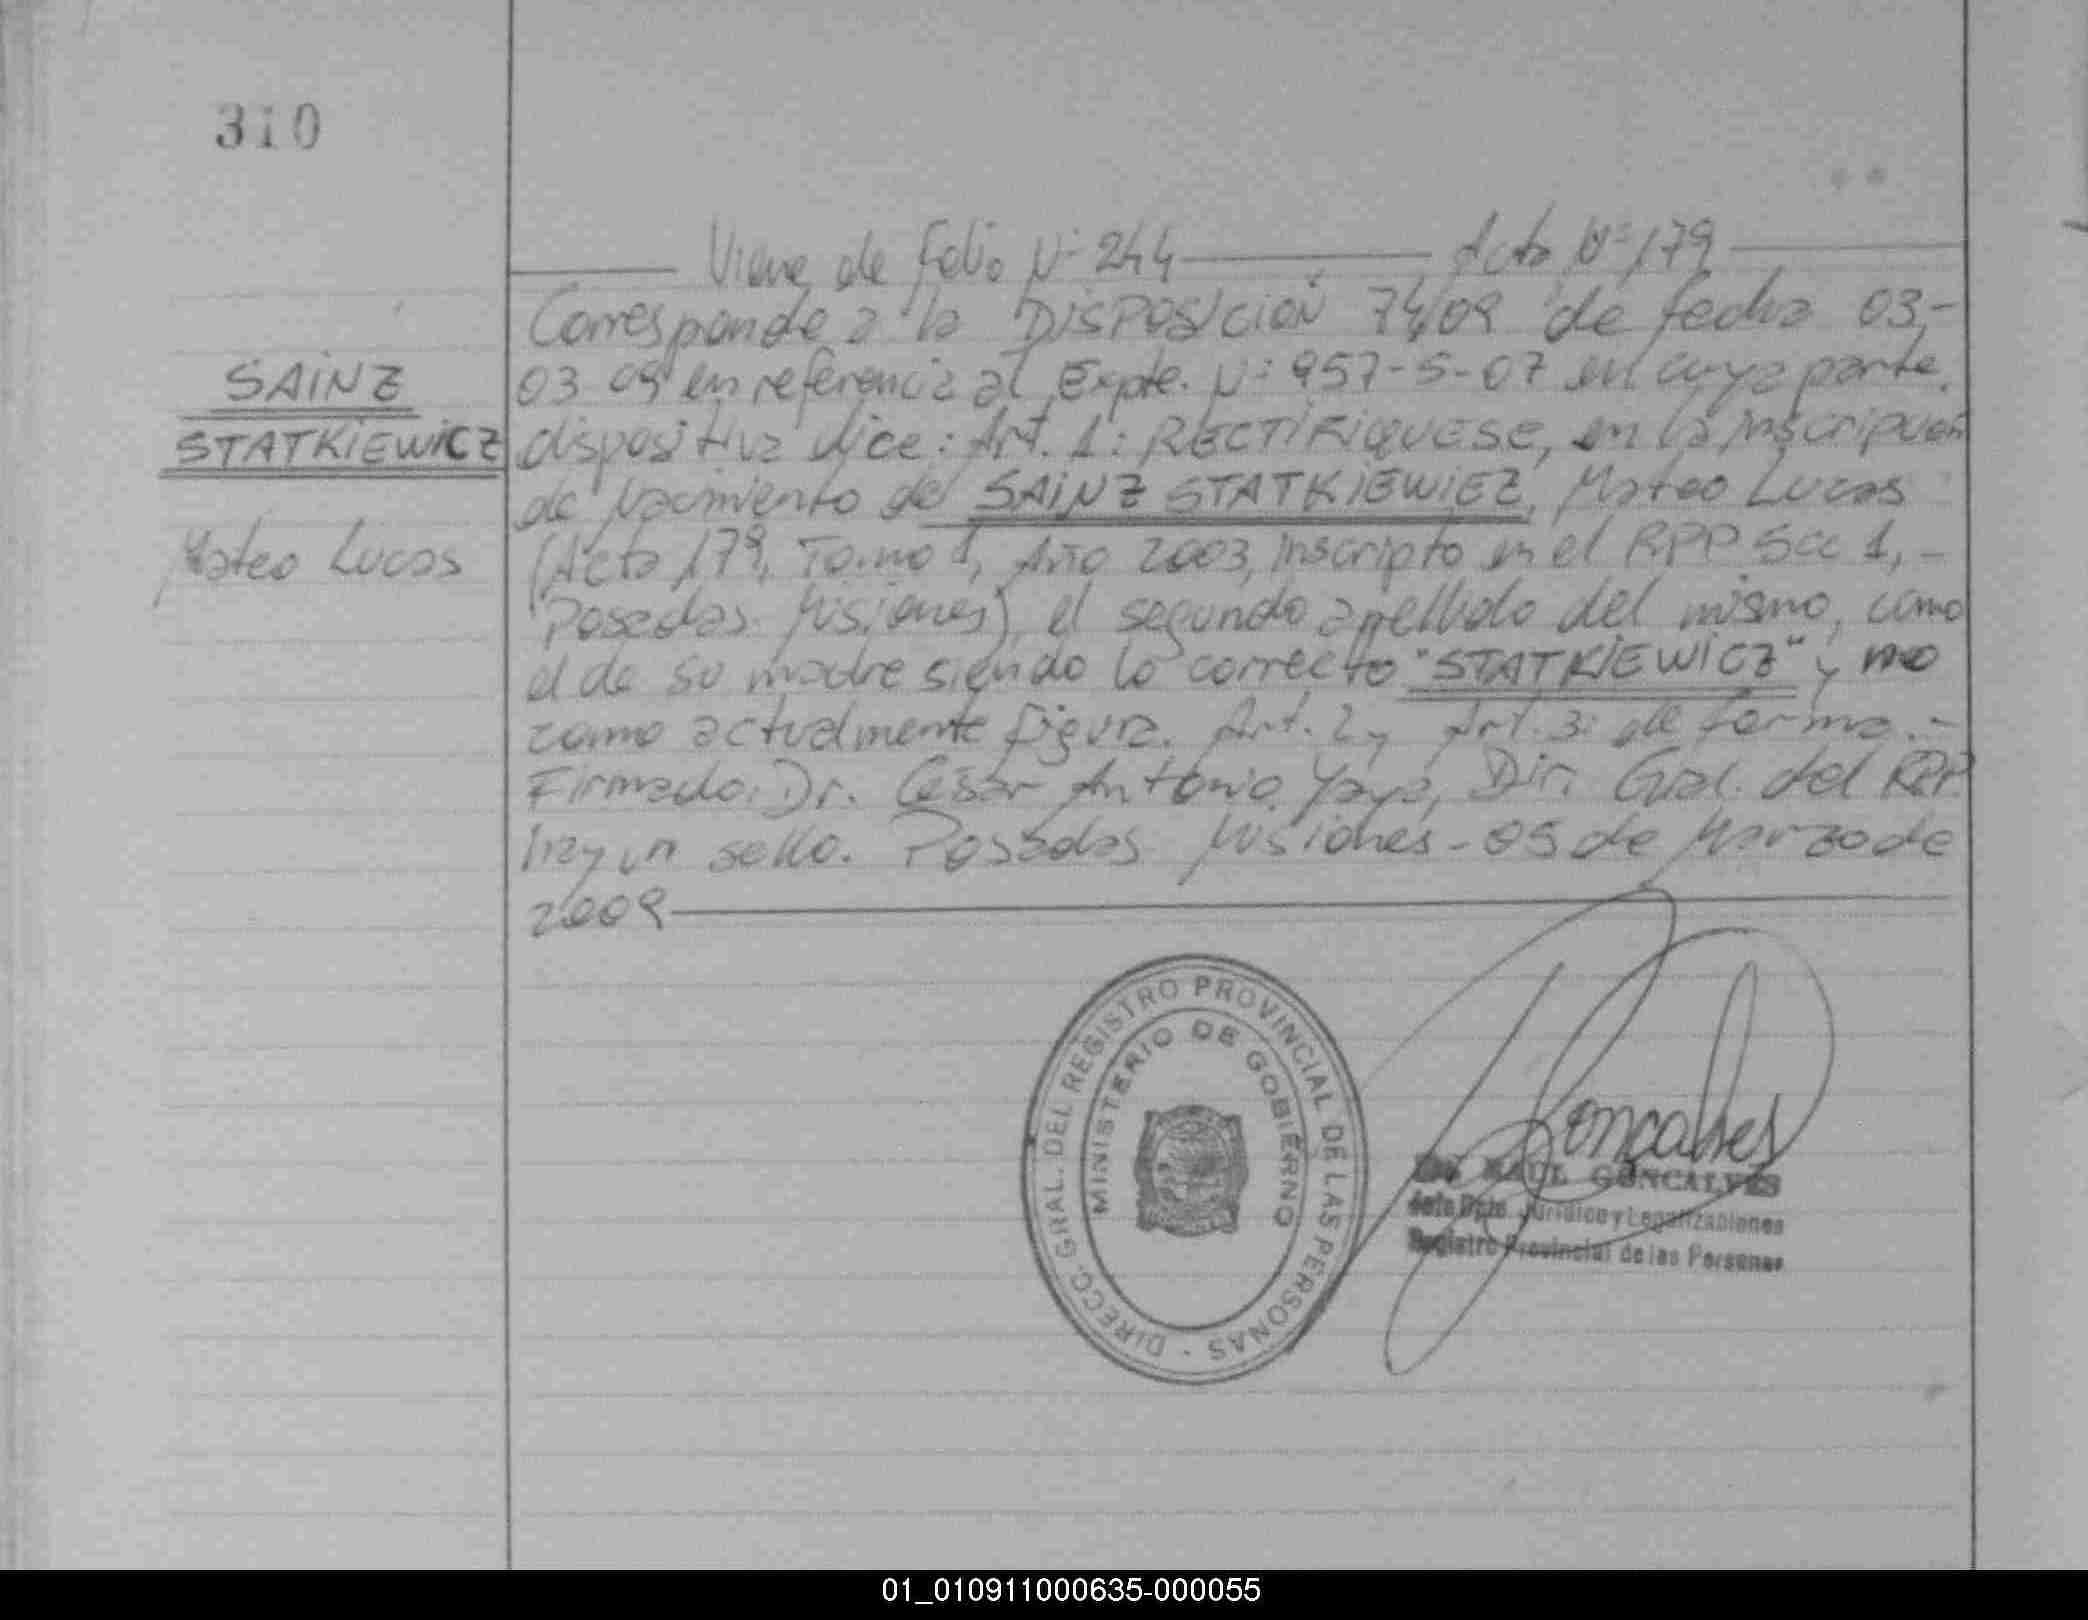 310
Viene de Folio Nº 244 Acta Nº 179
Corresponde a la DISPOSICIÓN 74/09 de fecha 03-
SAINZ
03-09 en referencia al Expte. Nº 957-S-07 en cuya parte
STATKIEWICZ
dispositiva dice: Art. 1: RECTIFIQUESE, en la inscripción
de Nacimiento de SAINZ STATKIEWIEZ, Mateo Lucas
Mateo Lucas
(Acta 179, Tomo 1, Año 2003, inscripto en el RPP Scc 1,-
Posadas Misiones), el segundo apellido del mismo, como
el de su madre siendo lo correcto "STATKIEWICZ" y no
como actualmente figura. Art. 2 y Art. 3: de forma.-
Firmado: Dr. César Antonio Yaya, Dir. Gral. del RPP
hay un sello. Posadas Misiones - 05 de Marzo de
2009
DIRECC. GRAL. DEL REGISTRO PROVINCIAL DE LAS PERSONAS -
MINISTERIO DE GOBIERNO
Goncalves
RAUL GONCALVES
Jefe Dpto. Jurídico y Legalizaciones
Registro Provincial de las Personas
01_010911000635-000055